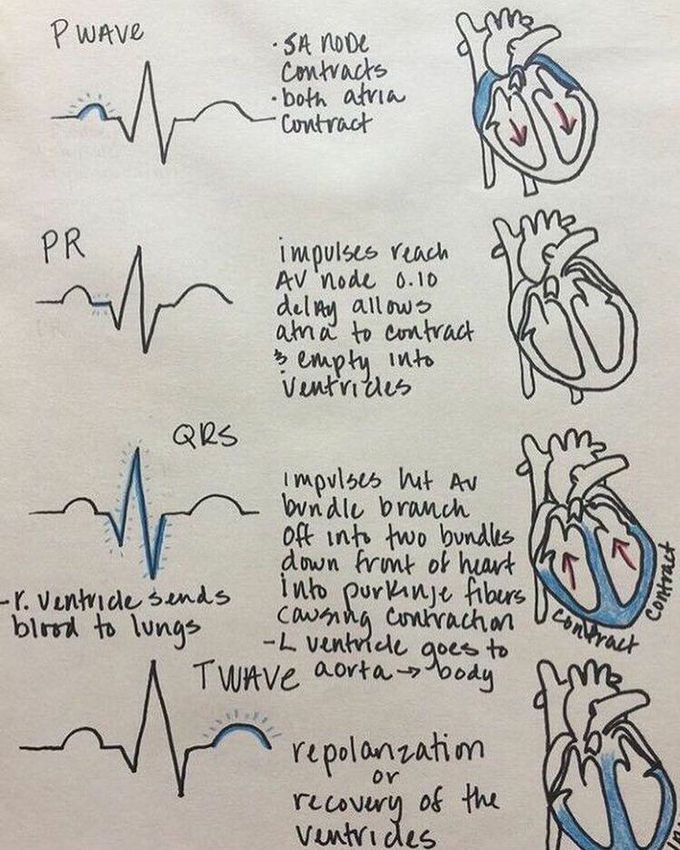 P WAVE
· SA NODE
Contracts
· both atria
Contract
PR
impulses reach
AV node 0.10
delay allows
atria to contract
& empty into
ventricles
QRS
impulses hit AV
bundle branch
off into two bundles
down front of heart
into purkinje fibers
causing contraction
- L ventricle goes to
aorta → body
- r. ventricle sends
blood to lungs
contract
contract
T WAVE
repolarization
or
recovery of the
ventricles